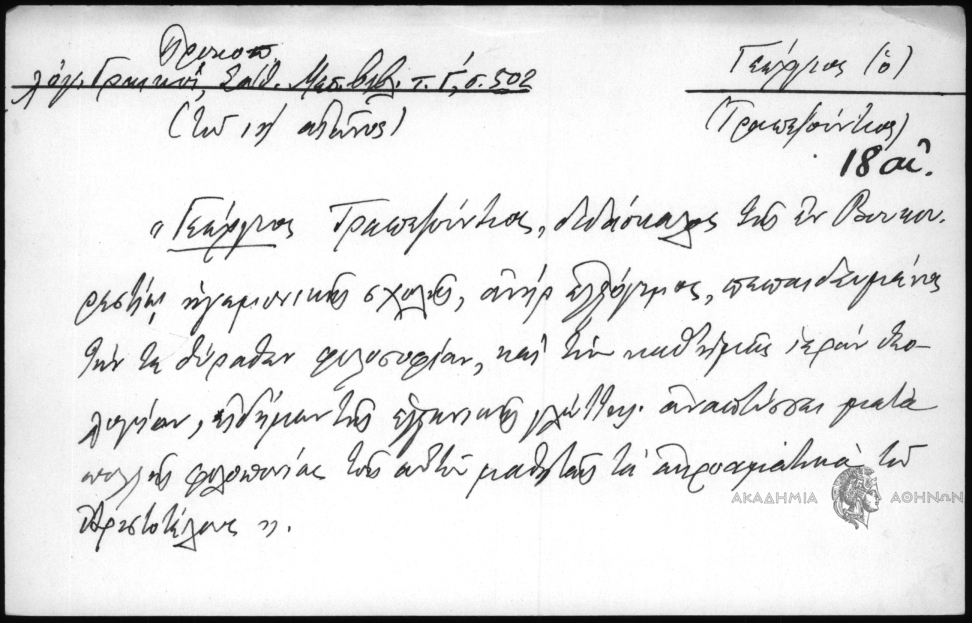 Προκοπ.
λόγ. Γραικοί, Σάθ. Μεσ. βιβ. τ. Γ', σ. 502
(τοῦ ιη' αἰῶνος)
Γεώργιος (ὁ)
(Τραπεζούντιος)
18 αι.
« Γεώργιος Τραπεζούντιος, διδάσκαλος τῆς ἐν Βουκου-
ρεστίῳ ἡγεμονικῆς σχολῆς, ἀνὴρ ἐλλόγιμος, πεπαιδευμένος
τήν τε θύραθεν φιλοσοφίαν, καὶ τὴν καθ' ἡμᾶς ἱερὰν θεο-
λογίαν, εἰδήμων τῆς ἑλληνικῆς γλώττης. ἀναπτύσσει μετὰ
πολλῆς φιλοπονίας τοῖς αὐτοῦ μαθηταῖς τὰ ἀκροαματικὰ τοῦ
Ἀριστοτέλους ».
ΑΚΑΔΗΜΙΑ ΑΘΗΝΩΝ